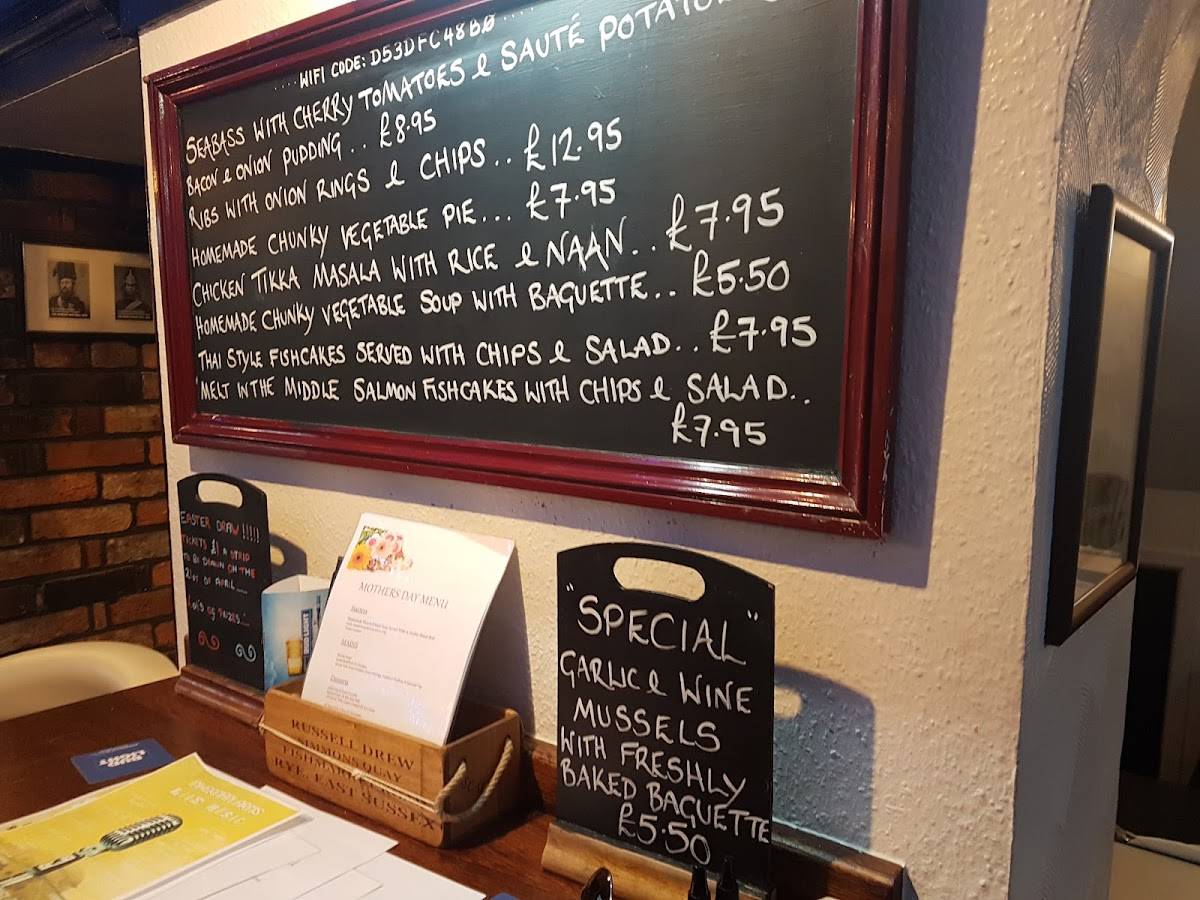 .... WIFI CODE: D53DFC48BØ .....
SEABASS WITH CHERRY TOMATOES & SAUTÉ
BACON & ONION PUDDING.. £8.95
RIBS WITH ONION RINGS & CHIPS.. £12.95
HOMEMADE CHUNKY VEGETABLE PIE... £7.95
CHICKEN TIKKA MASALA WITH RICE & NAAN.. £7.95
HOMEMADE CHUNKY VEGETABLE SOUP WITH BAGUETTE.. £5.50
THAI STYLE FISHCAKES SERVED WITH CHIPS & SALAD.. £7.95
'MELT IN THE MIDDLE SALMON FISHCAKES WITH CHIPS & SALAD..
£7.95
EASTER DRAW !!!!!
TICKETS £1 A STRIP
TO BE DRAWN ON THE
21ST OF APRIL
LOTS OF PRIZES
MOTHERS DAY MENU
Starters
MAINS
Desserts
RUSSELL DREW
SIMMONS QUAY
FISHMARKET
RYE, EAST SUSSEX
"SPECIAL"
GARLIC & WINE
MUSSELS
WITH FRESHLY
BAKED BAGUETTE
£5.50
LIVE MUSIC